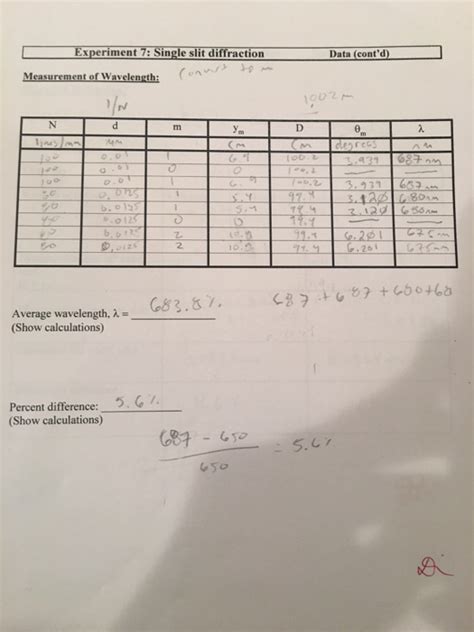 Experiment 7: Single slit diffraction Data (cont'd)
Measurement of Wavelength: to m
1/N
N d m ym D θm λ
lines/mm mm cm cm degrees nm
100 0.01 1 6.9 100.2 3.939 687 nm
100 0.01 0 0 100.2
100 0.01 1 6.9 100.2 3.939 687 nm
80 0.0125 1 5.4 99.4 3.120 680 nm
80 0.0125 1 5.4 99.4 3.120 680 nm
80 0.0125 0 0 99.4
80 0.0125 2 10.8 99.4 6.201 675 nm
80 0.0125 2 10.8 99.4 6.201 675 nm
Average wavelength, λ = 683.8%. 687 + 687 + 680 + 68
(Show calculations)
Percent difference: 5.6%
(Show calculations)
687 - 650
= 5.6%
650